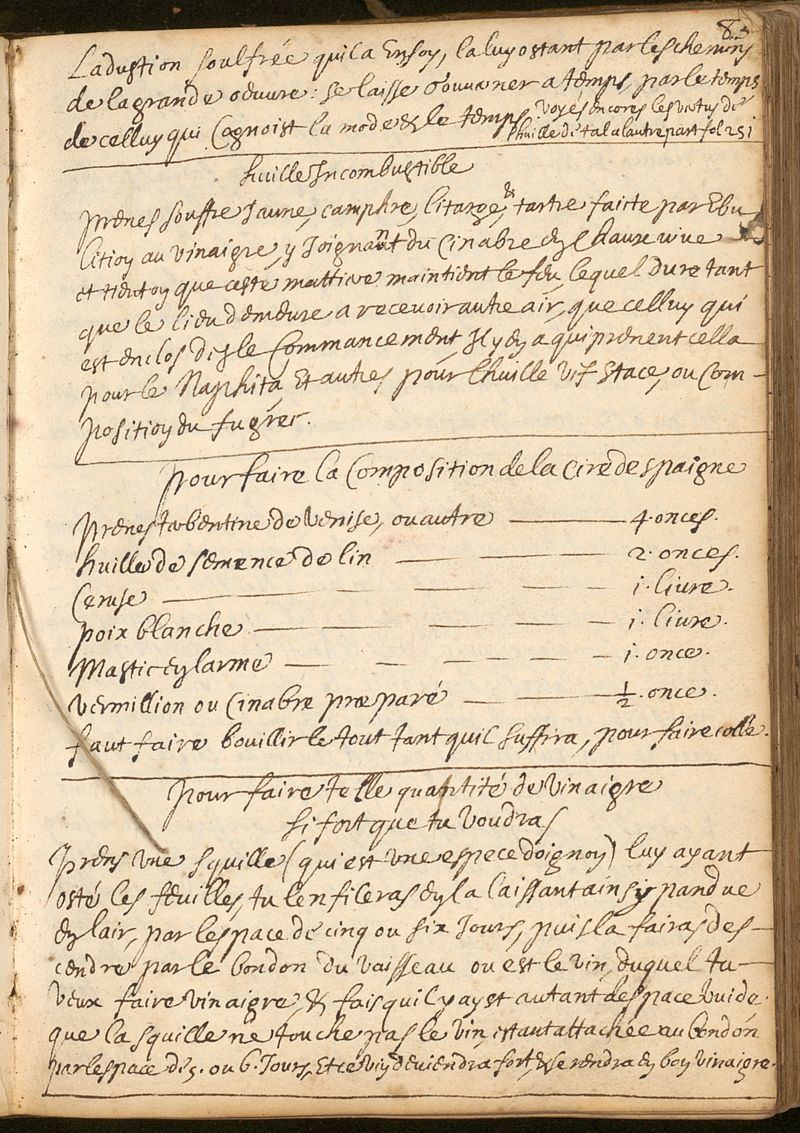 83
Ladustion soulfrée quil a En soy, la luy ostant par les chemins
de la grande oeuvre: se laisse gouverner a temps, par le temps
de celluy qui Cognoist la mode & le temps. voyés encores les vertus de
lhuille de tal a lautre part fol 251
huille Incombustible
prenes souffre Jaune, camphre, litarge, & tartre faicte par Ebu
lition au vinaigre, y Joignant du Cinabre & chaux vive
et tient on que ceste mattiere maintient le feu, lequel dure tant
que le lieu demeure a recevoir autre air, que celluy qui
est enclos des le Commancement, Il y en a qui prenent cella
pour le Naphta, Et autres pour lhuille vif Estace, ou Com-
position du fugrer.
pour faire la Composition de la Cire despaigne
prenes terbentine de venise, ou autre — 4. onces.
huille de semence de lin — 2. onces.
Ceruse — 1. livre.
poix blanche — 1. livre.
Mastic en larme — 1. once.
vermillion ou Cinabre præparé — ½. once.
faut faire bouillir le tout tant quil suffira, pour faire colle.
pour faire telle quantité de vinaigre
si fort que tu voudras
prens une squille (qui est une espece doignon) luy ayant
osté les feuilles, tu lenfileras en la laissant ainsy pandue
en lair, par lespace de cinq ou six Jours, puis la fairas des-
cendre par le bondon du vaisseau ou est le vin, duquel tu
veux faire vinaigre, & fais quil y ayst autant despace vuide
que la squille ne touche pas le vin, estant attachée au bondon
par lespace de 5. ou 6. Jours, Et ce vin deviendra fort & se rendra en bon vinaigre.